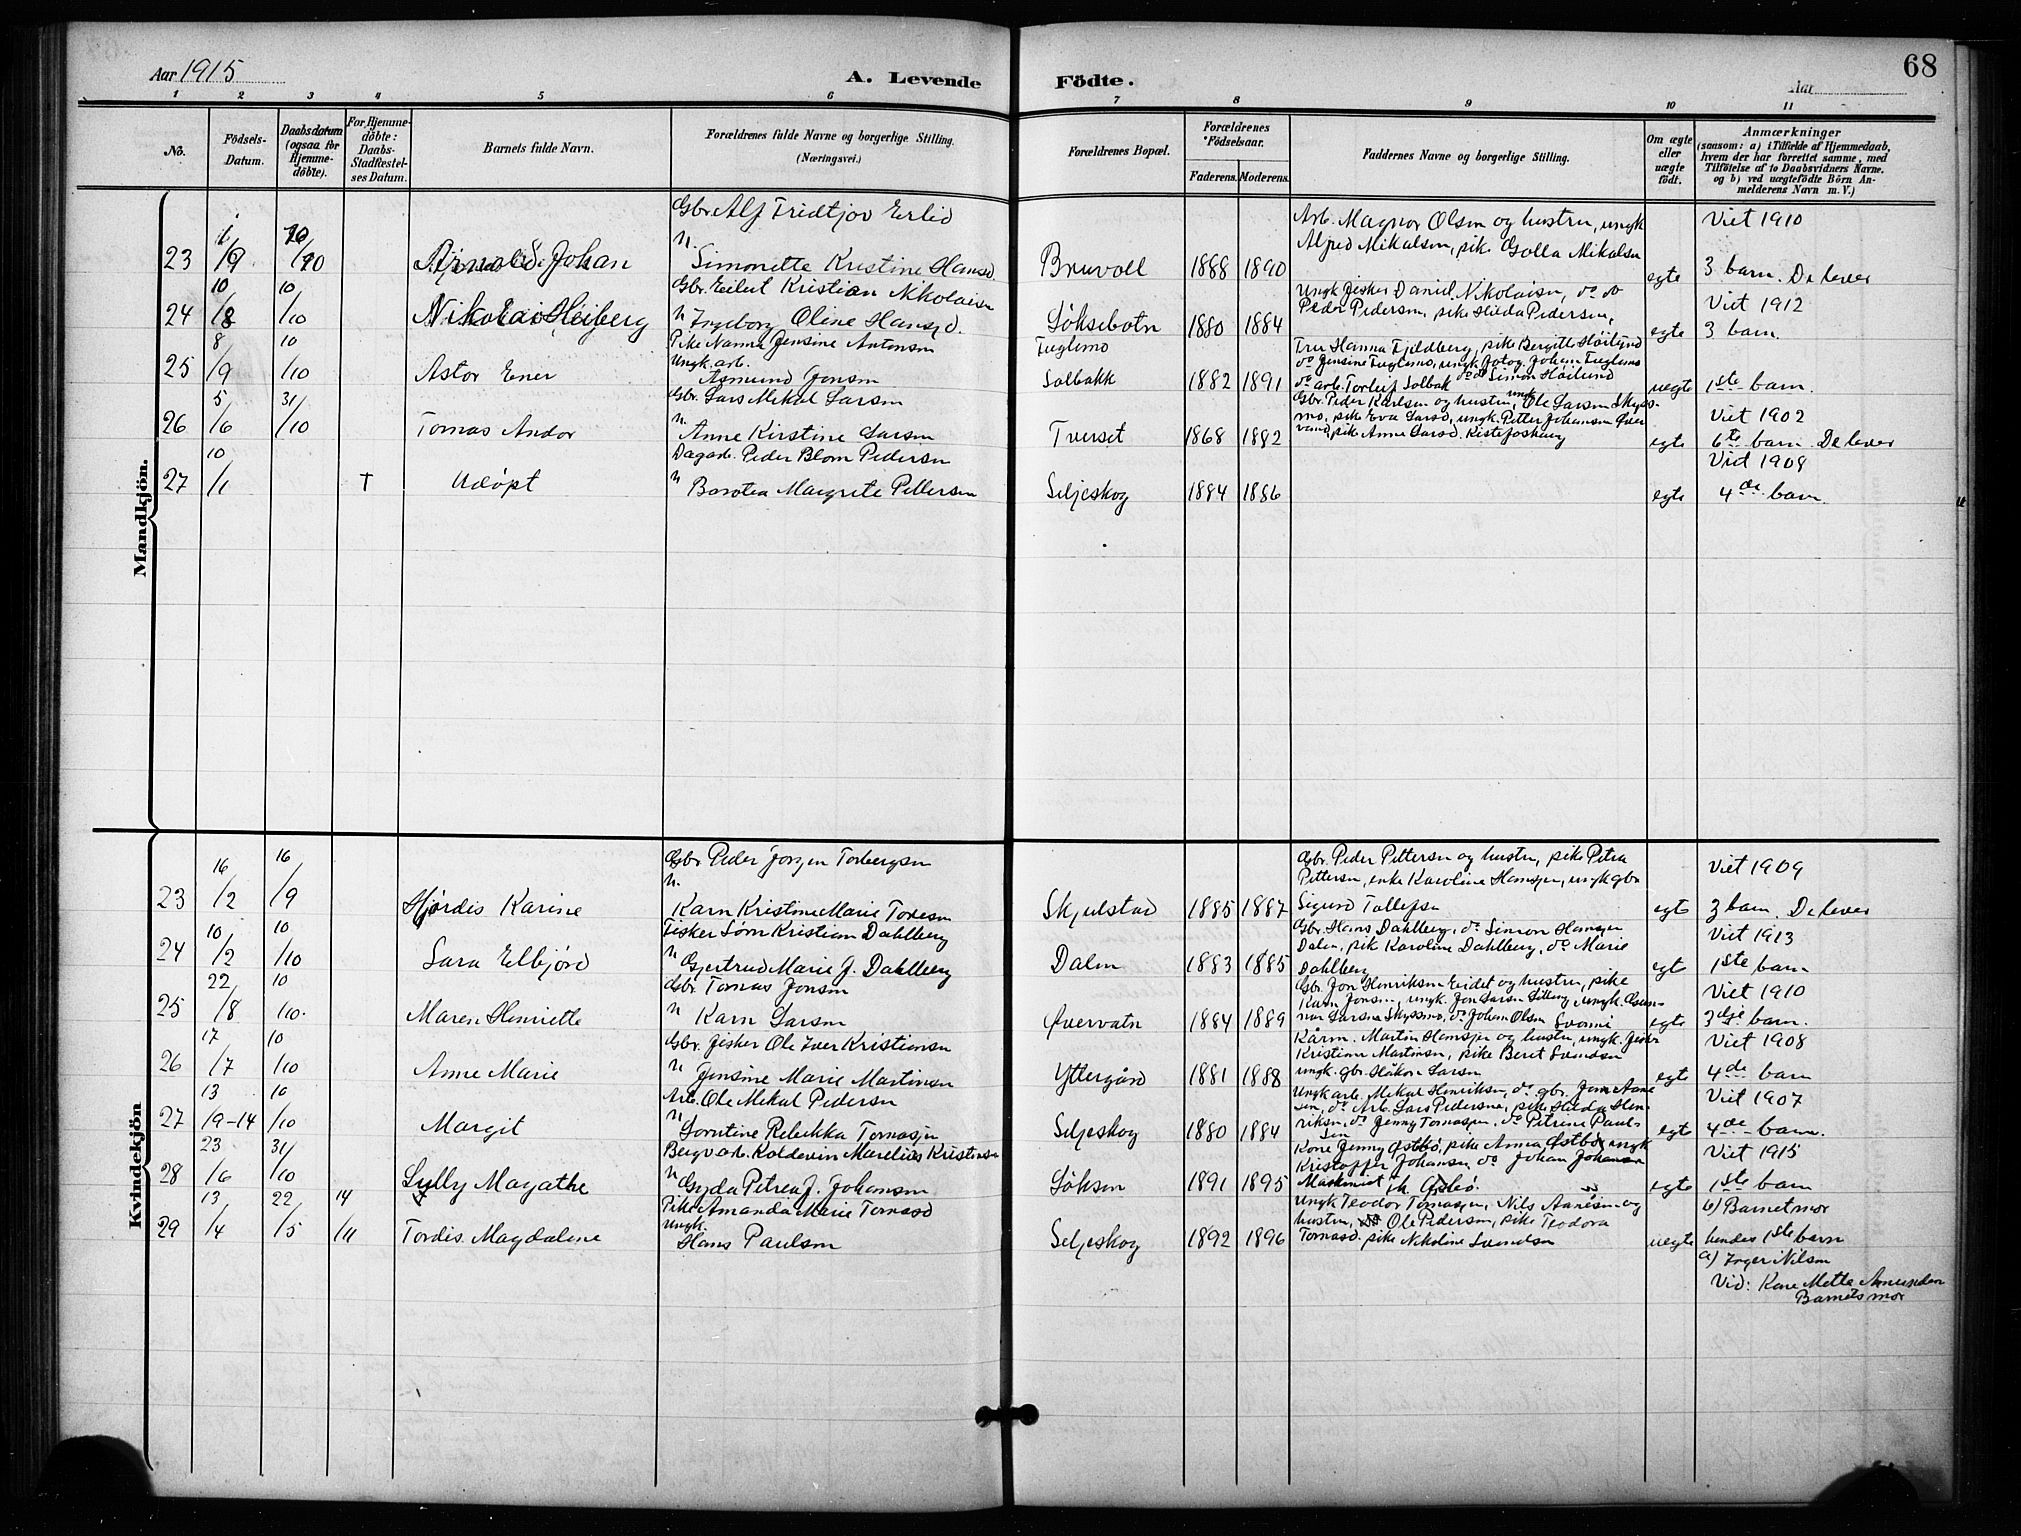 68
Aar 1915
A. Levende Födte.
Aar
1 2 3 4 5 6 7 8 9 10 11
No.
Födsels-Datum.
Daabsdatum (ogsaa for Hjemmedöbte).
For Hjemmedöbte: Daabs-Stadfæstelses Datum.
Barnets fulde Navn.
Forældrenes fulde Navne og borgerlige Stilling. (Næringsvei.)
Forældrenes Bopæl.
Forældrenes Födselsaar.
Faderens. Moderens.
Faddernes Navne og borgerlige Stilling.
Om ægte eller uægte födt.
Anmærkninger
(saasom: a) i Tilfælde af Hjemmedaab,
hvem der har forrettet samme, med
Tilföielse af to Daabsvidners Navne.
og b) ved uægtefödte Börn An-
melderens Navn m. V.)
Mandkjön.
23 1/9 /10 Johan
Gbr. Alf Fridtjov Erlid
Simonette Kristine Hansd
Bruvoll 1888 1890
Arb. Magnor Olsen og hustru, ungk
Alfred Mikalsen, pike Golla Mikalsen
egte
Viet 1910
3 barn. De lever
24 10/8 10/10 Nikolai Heiberg
Gbr. Eilert Kristian Nikolaisen
Ingeborg Oline Hansd.
Söksebotn 1880 1884
Ungk fisker Daniel Nikolaisen, do do
Peder Pedersen, pike Hilda Pedersen,
egte
Viet 1912
3 barn.
25 8/9 10/10 Astor Ener
Pike Nanna Jensine Antonsen
Ungk. arb. Asmund Jonsen
Fuglemo
Solbakk 1882 1891
Fru Hanna Fjeldberg, pike Bergitte Höilund
do Jensine Fuglemo, ungk. fotog. Johan Fuglemo
do arb. Torleif Solbak do do Simon Höilund
uegte
1ste barn.
26 5/6 31/10 Tomas Andor
Gbr. Lars Mekal Larsen
Anne Kirstine Larsen
Tverset 1868 1882
Gbr. Peder Karlsen og hustru, ungk Ole Larsen Skyds-
mo, pike Eva Larsd, ungk. Petter Johansen Över
vand, pike Anne Larsd.
egte
Viet 1902
6te barn De lever
27 10/1 T Udöpt
Dagarb. Peder Blom Pedersen
Borotea Margrete Pettersen
Seljeskog 1884 1886
egte
Vid 1908
4de barn.
Kvindekjön
23 16/2 16/9 Hjördis Karine
Gbr Peder Jorgen Torbergsen
Karn Kristine Marie Toresen
Skjelstad 1885 1887
Gbr. Peder Pettersen og hustru, pike Petra
Pettersen, enke Karoline Hansen, ungk gbr
Sigurd Tollefsen
egte
Viet 1909
3 barn. De lever
24 10/2 10/10 Sara Elbjörd
Fisker Sörn Kristian Dahlberg
Gjertrud Marie J. Dahlberg
Dalen 1883 1885
Gbr. Hans Dahlberg, do Simon Hansen
Dalen, pik Karoline Dahlberg, do Marie
Dahlberg
egt
Viet 1913
1ste barn
25 22/8 10/10. Maren Henriette
Gbr. Tomas Jonsen
Karn Larsen
Övervatn 1884 1889
Gbr. Jon Henriksen Eidet og hustru, pike
Karn Jonsen, ungk. Jon Larsen
egte
Viet 1910
3dje barn.
26 17/7 10/10 Anne Marie
Gbr. fisker Ole Iver Kristiansen
Jensine Marie Martinsen
Yttergård 1881 1888
Martin Hansen og hustru, ungk. fisker
Kristian Martinsen, pike Beret Svendsen
ungk. gbr. Håkon Larsen
egte
Viet 1908
4de barn
27 13/9-14 10/10 Margit
Arb. Ole Mekal Pedersen
Lorntine Rebekka Tomassen
Seljeskog 1880 1884
Ungk arb. Mekal Henriksen, do gbr. Jon Aane
sen, do Arb. Lars Pedersen, pike Hilda Hen-
riksen, do Jenny Tomassen, do Petrine Paul-
sen
egte
Viet 1907
4de barn.
28 23/6 31/10 Lylly Magathe
Bergvarb. Koldevin Marelius Kristensen
Gyda Petrea J. Johansen
Söksen 1891 1895
Kone Jenny Östbö, pike Anna Östbö, ungk
Kristoffer Johansen, do Johan Johansen
Maskinist Östbö.
egte
Viet 1915
1ste barn
29 13/4 22/5 14/11 Tordis Magdalene
Pike Amanda Marie Tomasd
Ungk. Hans Paulsen
Seljeskog 1892 1896
Ungk Teodor Tomassen, Nils Aanesen og
hustru, Ole Pedersen, pike Teodora
Tomasd. pike Nikoline Svendsen
uegte
b) Barnet mor
hendes 1ste barn
a) Inger Nilsen
Vid: Kone Mette Amundsen
Barnets mor